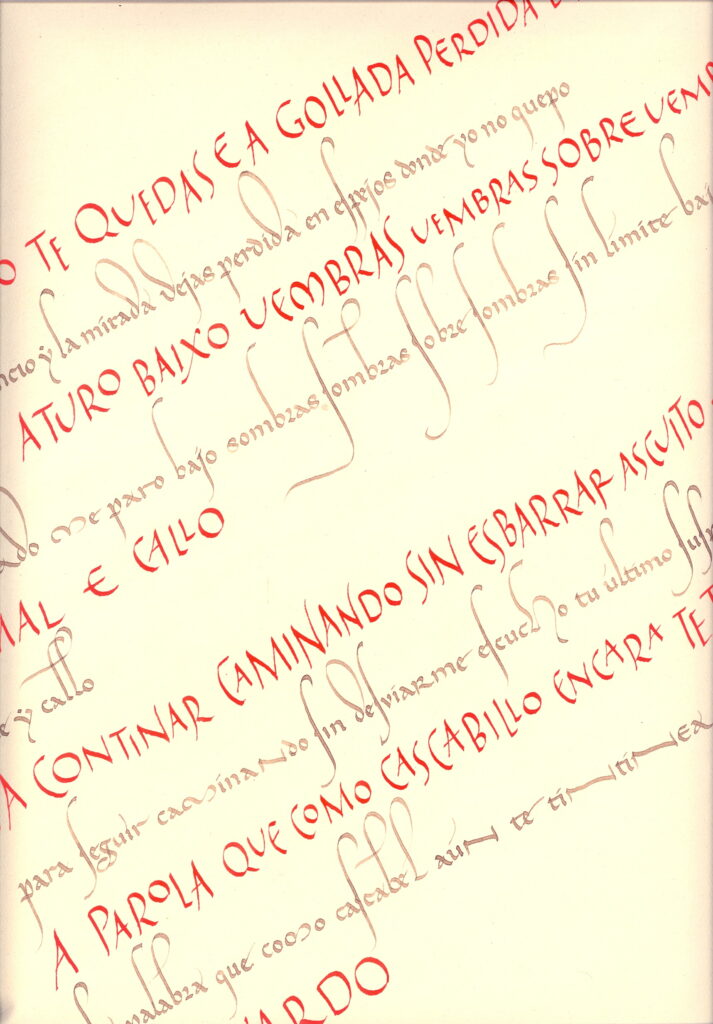 O TE QUEDAS E A GOLLADA PERDIDA
ncio ÿ la mirada dejas perdida en espejos donde yo no quepo
ATURO BAIXO UEMBRAS UEMBRAS SOBRE UEMB
ado me paro bajo sombras, sombras sobre sombras sin límite baj
MAL E CALLO
e ÿ callo
A CONTINAR CAMINANDO SIN ESBARRAR ASCUITO
para seguir caminando sin desviarme escucho tu último sus
A PAROLA QUE COMO CASCABILLO ENCARA TE T
palabra que como cascabel aún te tintinea
ARDO